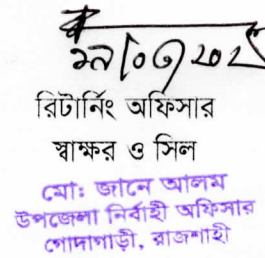 রিটার্নিং অফিসার
স্বাক্ষর ও সিল
মো: জানে আলম
উপজেলা নির্বাহী অফিসার
গোদাগাড়ী, রাজশাহী